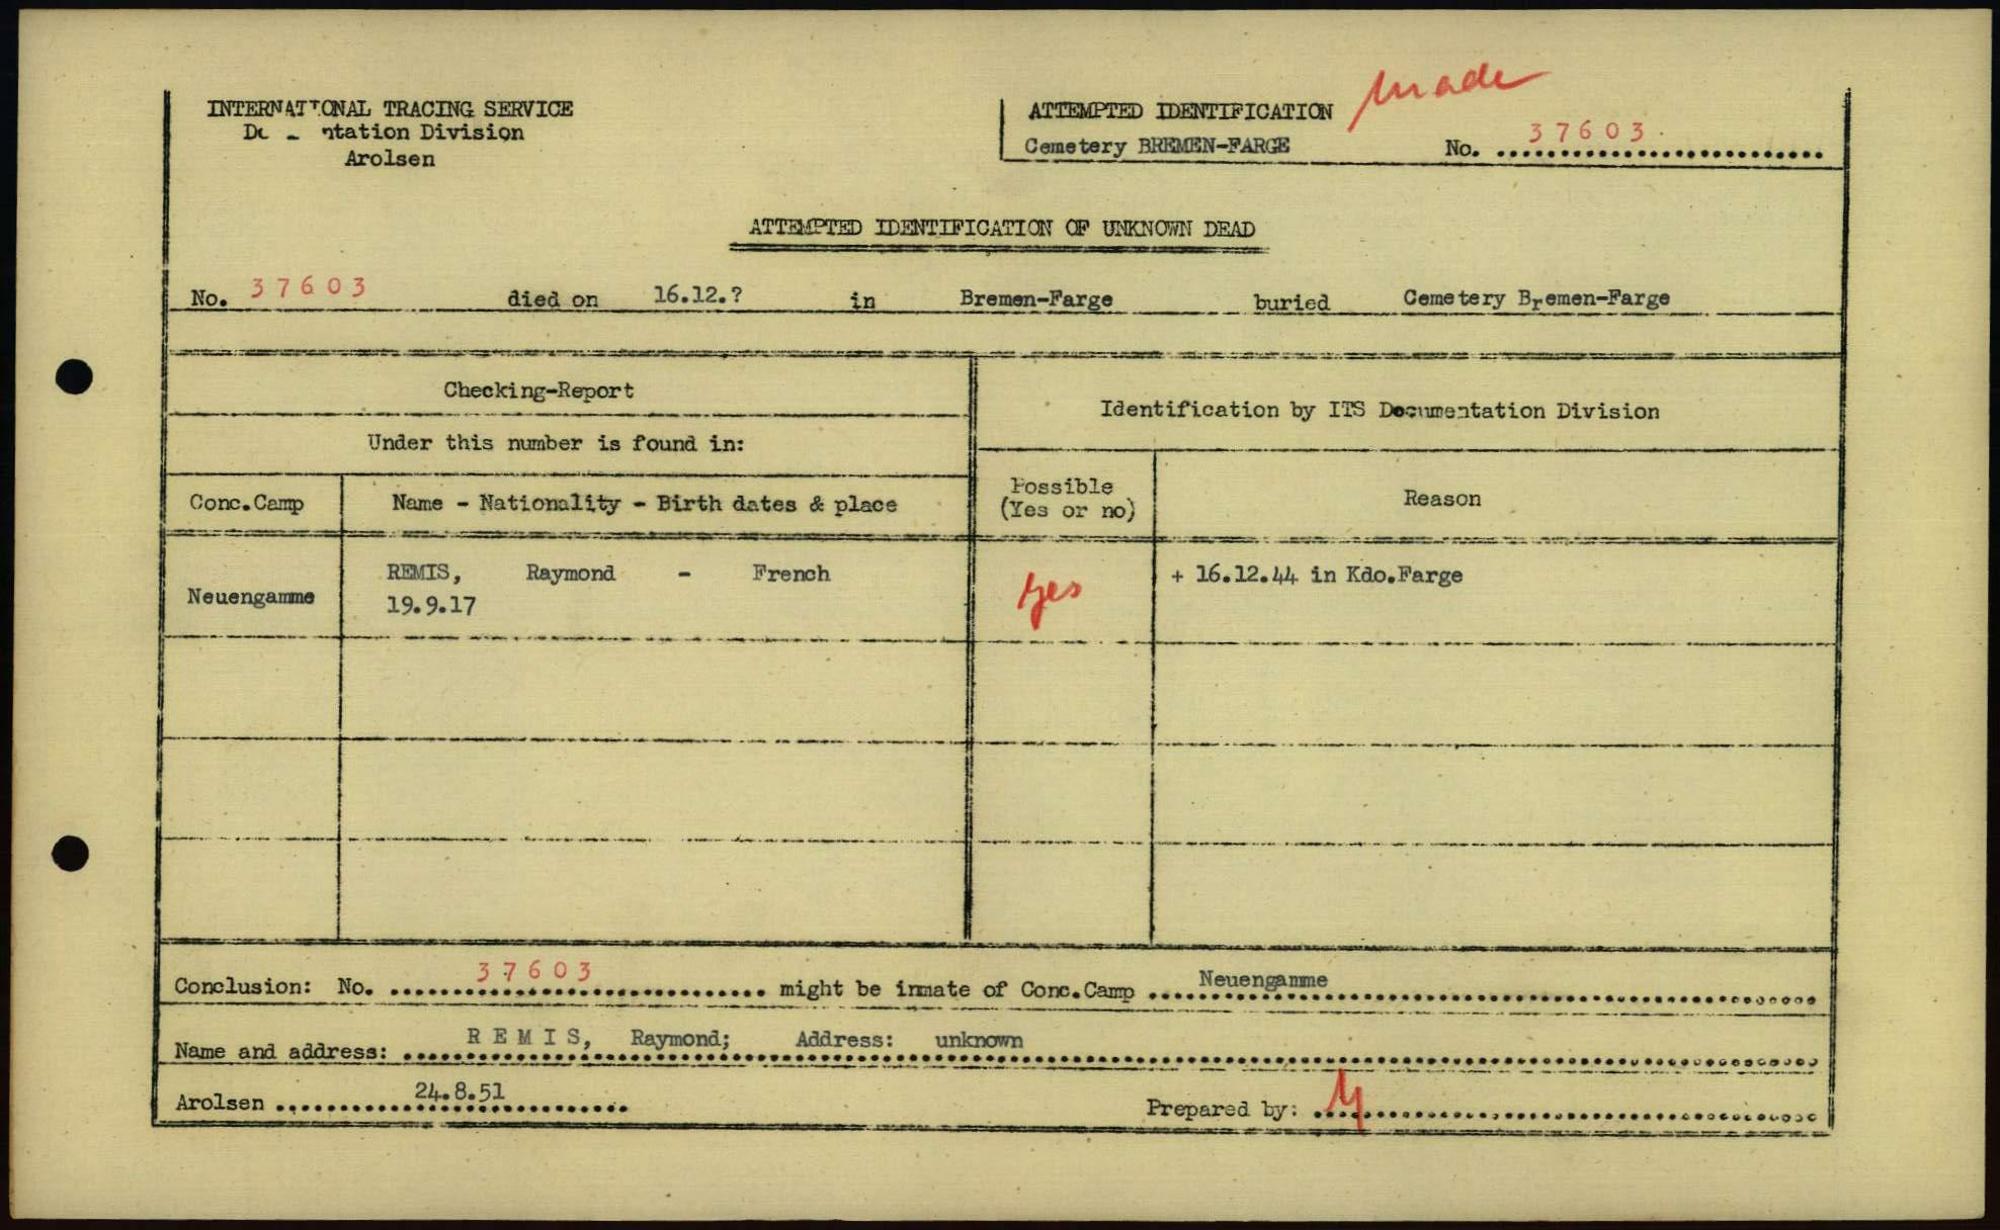 INTERNATIONAL TRACING SERVICE
ntation Division
Arolsen
ATTEMPTED IDENTIFICATION made
Cemetery BREMEN-FARGE No. 37603
ATTEMPTED IDENTIFICATION OF UNKNOWN DEAD
No. 37603 died on 16.12.? in Bremen-Farge buried Cemetery Bremen-Farge
Checking-Report
Identification by ITS Documentation Division
Under this number is found in:
Conc.Camp
Name - Nationality - Birth dates & place
Possible
(Yes or no)
Reason
Neuengamme
REMIS, Raymond - French
19.9.17
yes
+ 16.12.44 in Kdo.Farge
Conclusion: No. 37603 might be inmate of Conc.Camp Neuengamme
Name and address: REMIS, Raymond; Address: unknown
Arolsen 24.8.51
Prepared by: